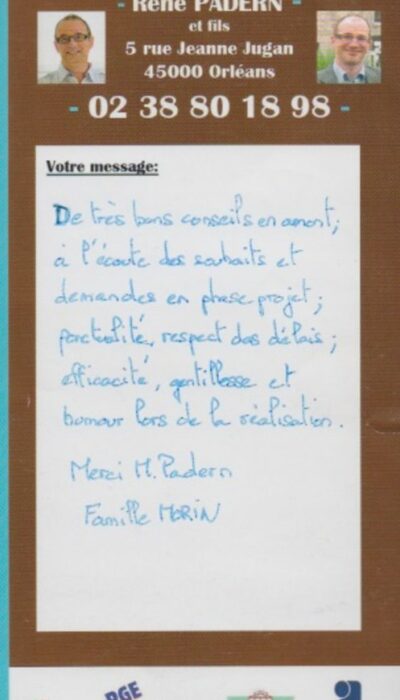 - René PADERN -
et fils
5 rue Jeanne Jugan
45000 Orléans
- 02 38 80 18 98 -
Votre message:
De très bons conseils en amont;
à l'écoute des souhaits et
demandes en phase projet;
ponctualité, respect des délais;
efficacité, gentillesse et
humour lors de la réalisation.
Merci M. Padern
Famille MORIN
RGE